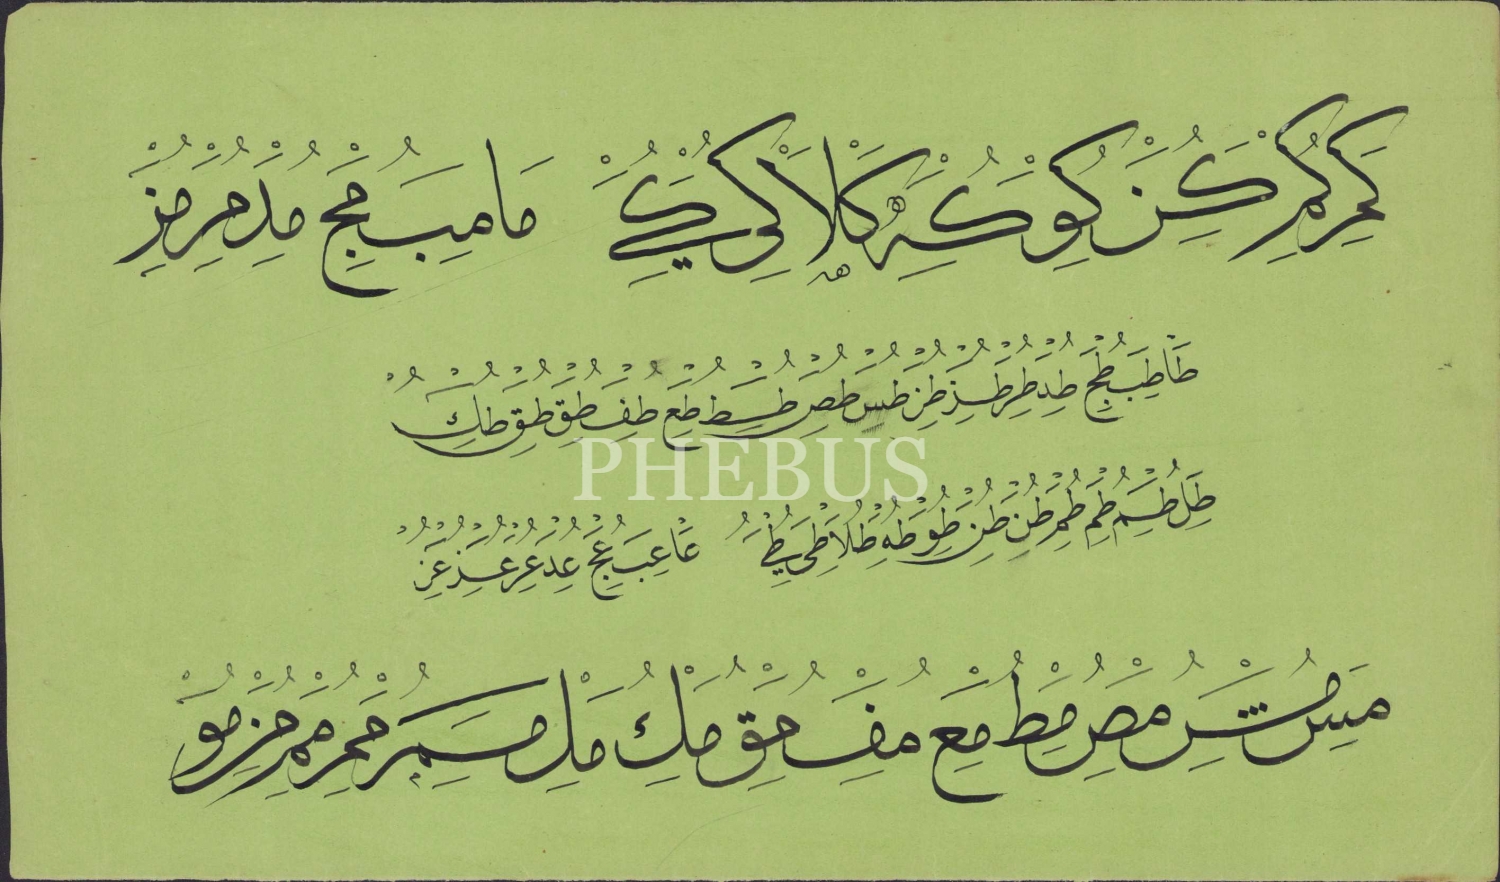 كم كم كن كو كه كلا كى كے ما مب مج مد مر مز
طا طب طج طد طر طز طن طس طص طط طع طف طق طق طك
PHEBUS
طل طم طم طم طن طن طو طه طلا طى طے عا عب عج عد عر عز عز
مس مش مص مط مع مف مق مك مل مم مم مم من مو